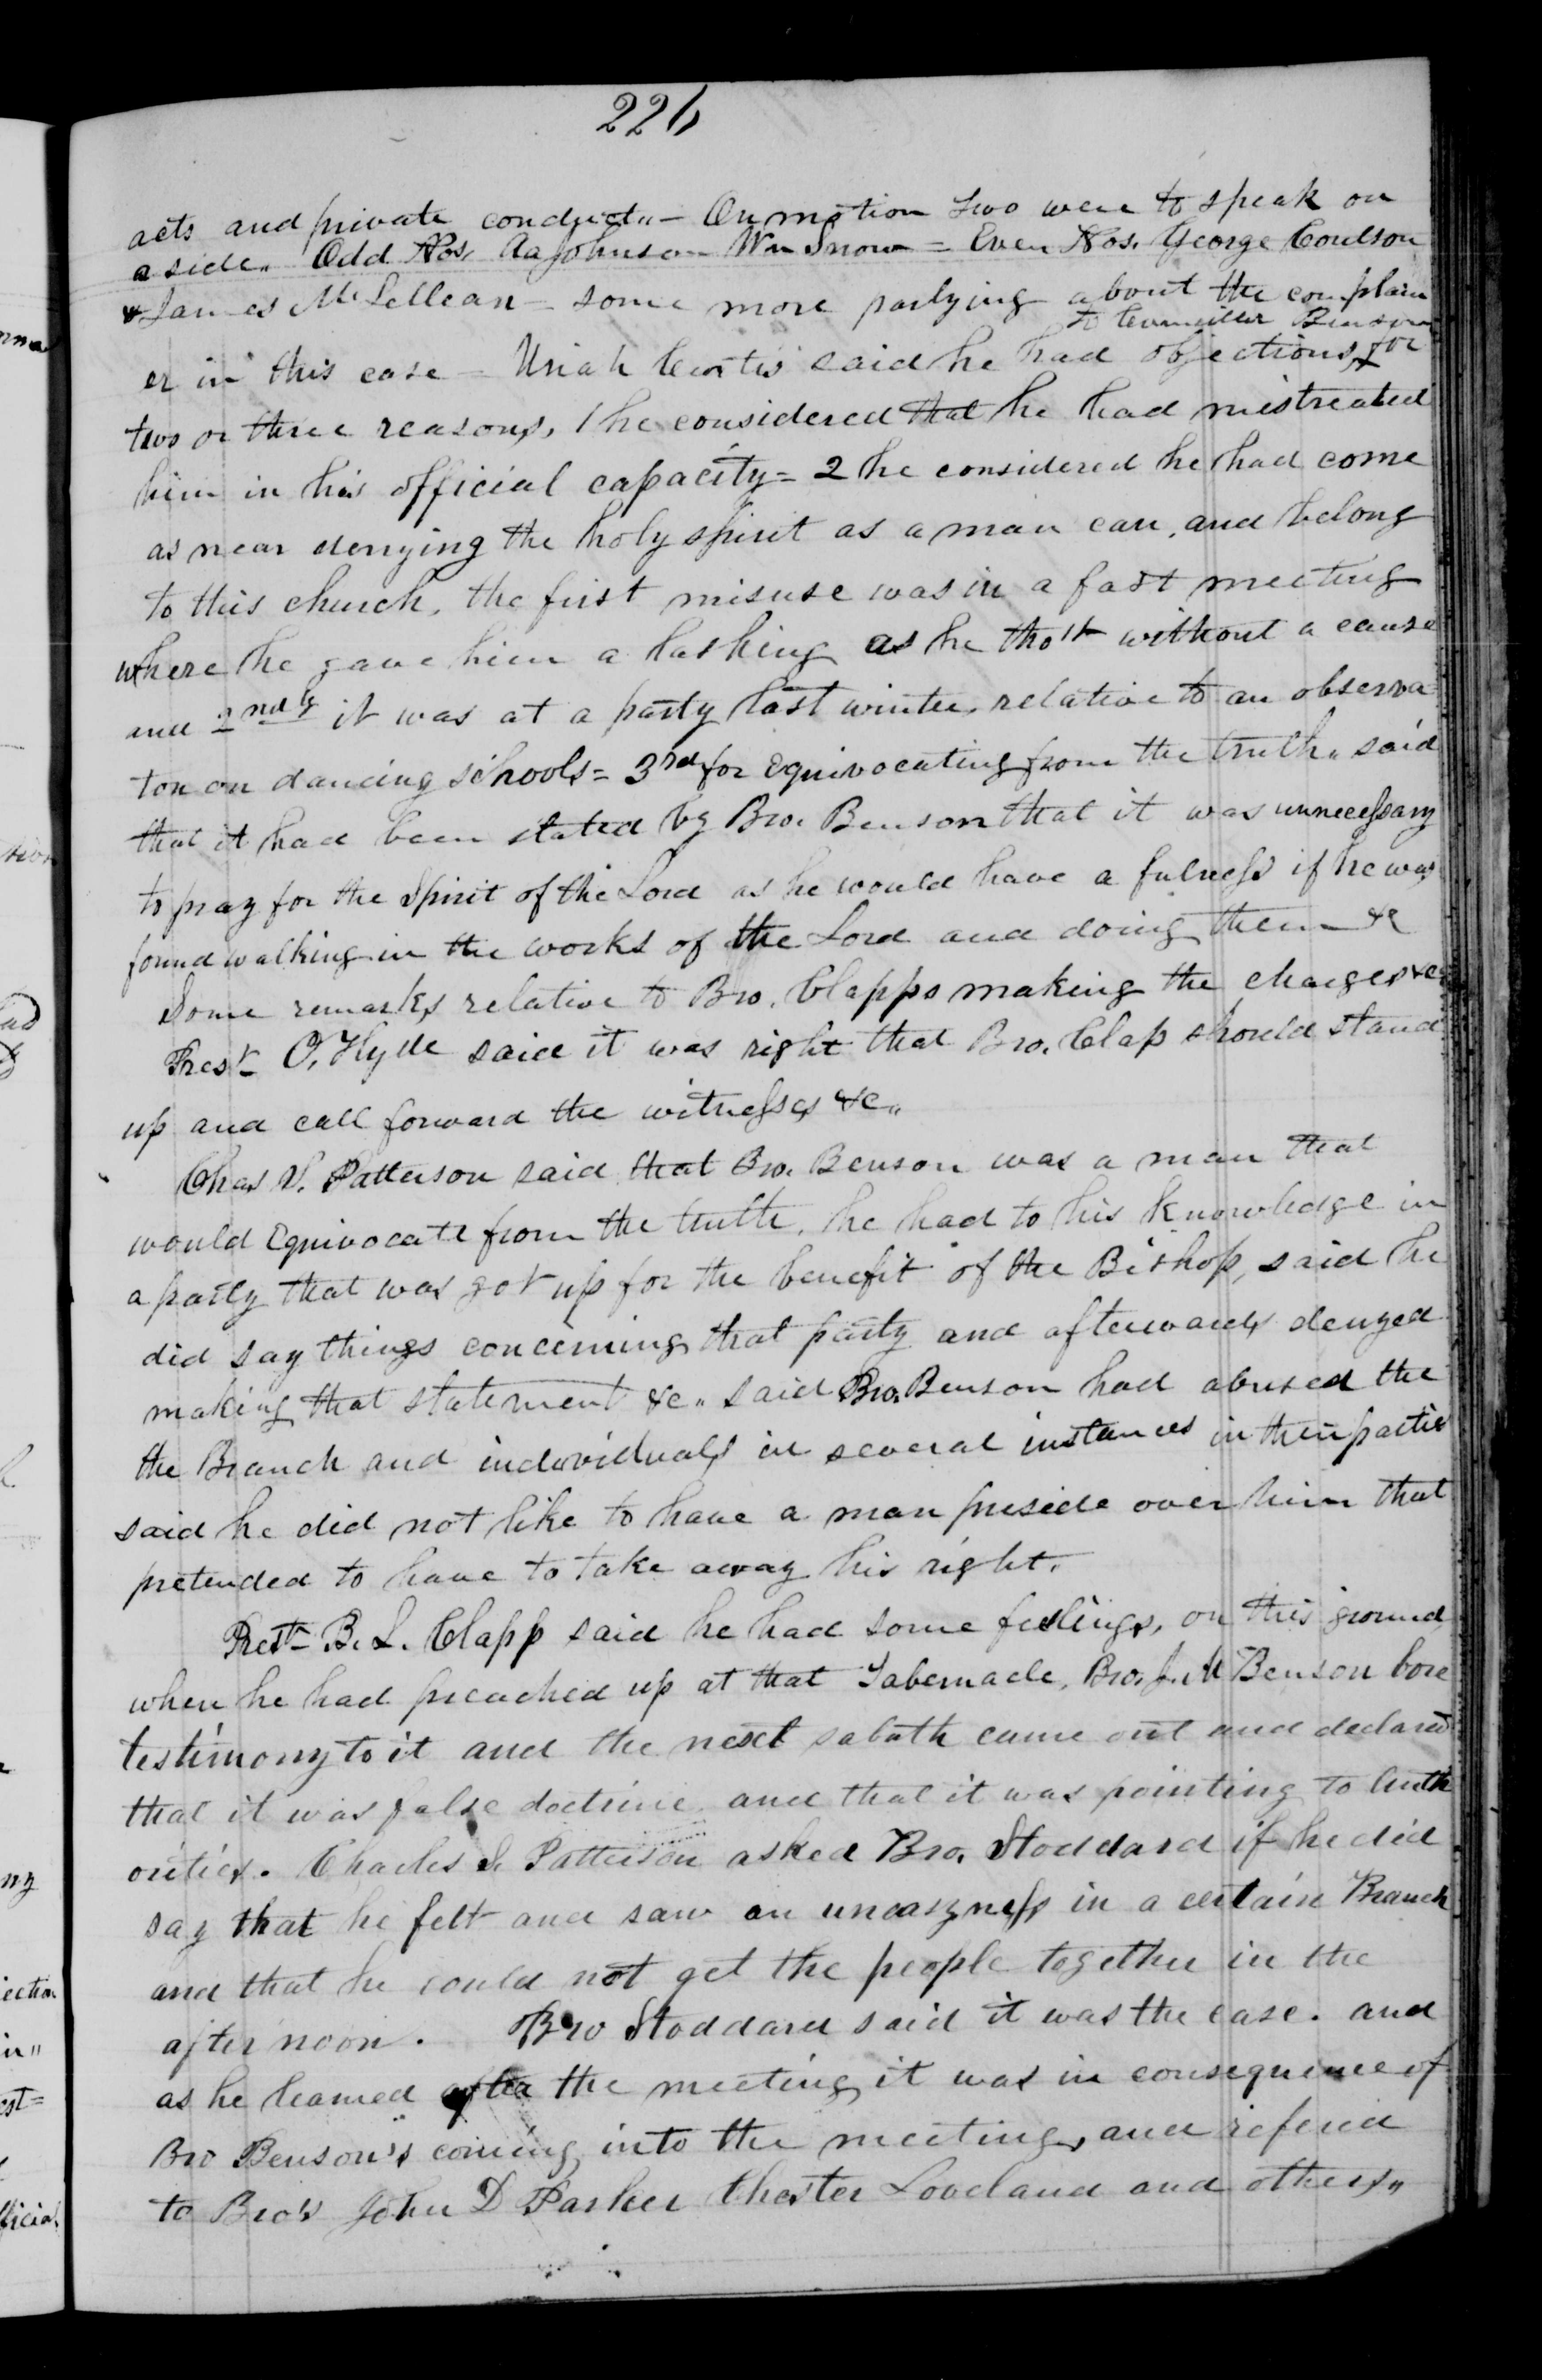 226
acts and private conduct„ — On motion two were to speak on
a side„ Odd Nos, Aa Johnson Wm Snow = Even Nos. George Coulson
& James McLellean — some more parlying about the complain
to Councillor Benson
er in this case — Uriah Curtis said he had objections, for
two or three reasons, 1 he considered that he had mistreated
him in his official capacity = 2 he considered he had come
as near denying the holy spirit as a man can, and belong
to this church, the first misuse was in a fast meeting
where he gave him a lashing as he tho't without a cause
and 2ndly it was at a party last winter, relative to an observa
ton on dancing schools = 3rd for Equivocating from the truth„ said
that it had been stated by Bro. Benson that it was unnecessary
to pray for the Spirit of the Lord as he would have a fulness if he was
found walking in the works of the Lord and doing them &c
Some remarks relative to Bro. Clapps making the charges &c
Prest O. Hyde said it was right that Bro. Clap should stand
up and call forward the witnesses &c„
Chas S. Patterson said that Bro. Benson was a man that
would Equivocate from the truth, he had to his knowledge in
a party that was got up for the benefit of the Bishop, said he
did say things concerning that party and afterwards denyed
making that statement &c„ said Bro. Benson had abused the
the Branch and individuals in several instances in their parties
said he did not like to have a man preside over him that
pretended to have to take away his right.
Prest B. L. Clapp said he had some feelings, on this ground,
when he had preached up at that Tabernacle, Bro. Benson bore
testimony to it and the next sabath came out and declared
that it was false doctrine and that it was pointing to Auth
orities. Charles S. Patterson asked Bro. Stoddard if he did
say that he felt and saw an uneasyness in a certain Branch
and that he could not get the people together in the
after noon. Bro Stoddard said it was the case. and
as he learned after the meeting it was in consequence of
Bro Benson's coming into the meeting, and refered
to Bro's John D Parker Chester Loveland and others„